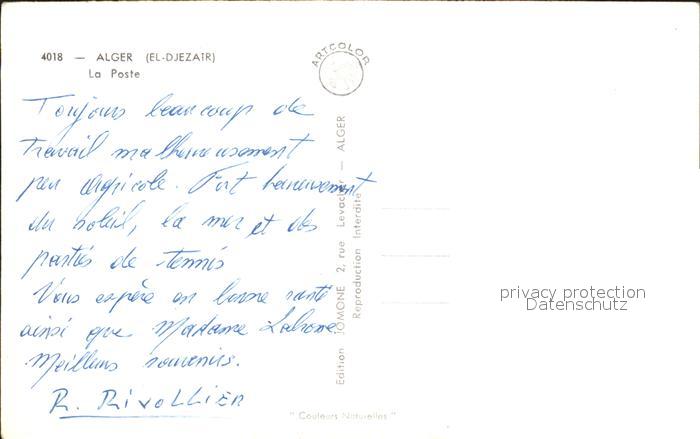 4018 — ALGER (EL-DJEZAIR)
La Poste
ARTCOLOR
Toujours beaucoup de
travail malheureusement
peu agricole. Fort heureusement
du soleil, la mer et des
parties de tennis
Vous espère en bonne santé
ainsi que Madame
Meilleurs souvenirs.
R. RIVOLLIER
Edition JOMONE 2, rue Levacher — ALGER
Reproduction Interdite
" Couleurs Naturelles "
privacy protection
Datenschutz